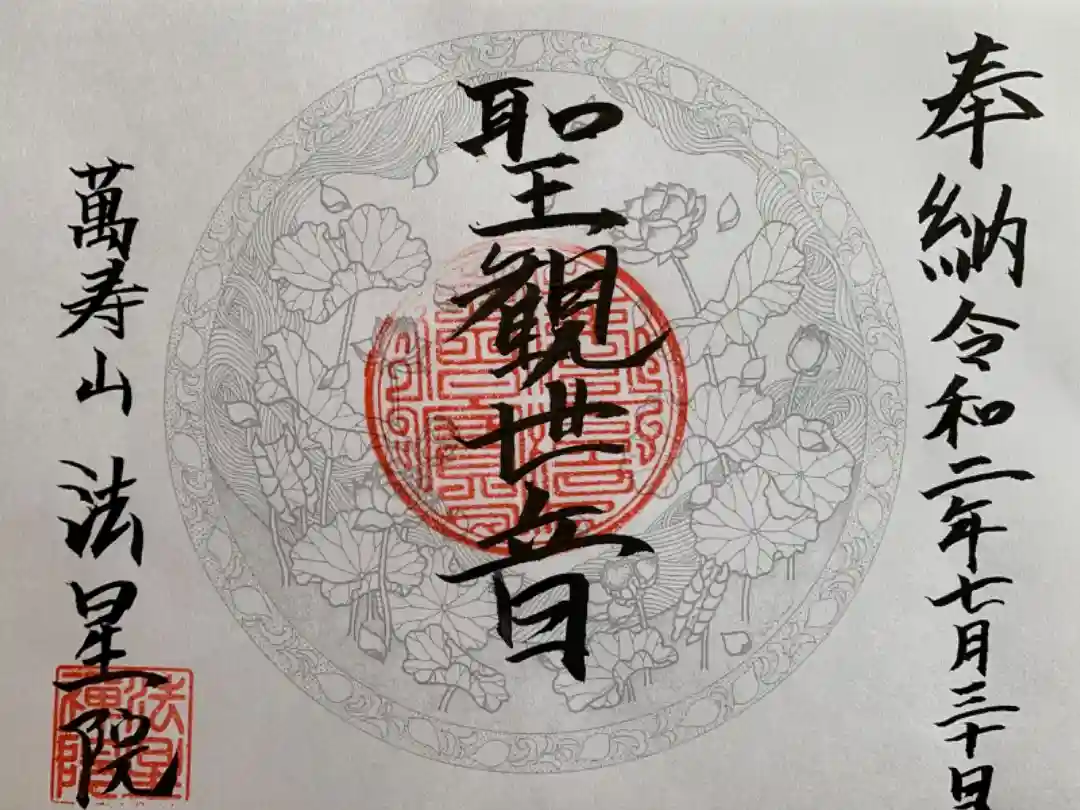 奉納 令和二年七月三十日
聖観世音
萬寿山 法星院
法星
禅院